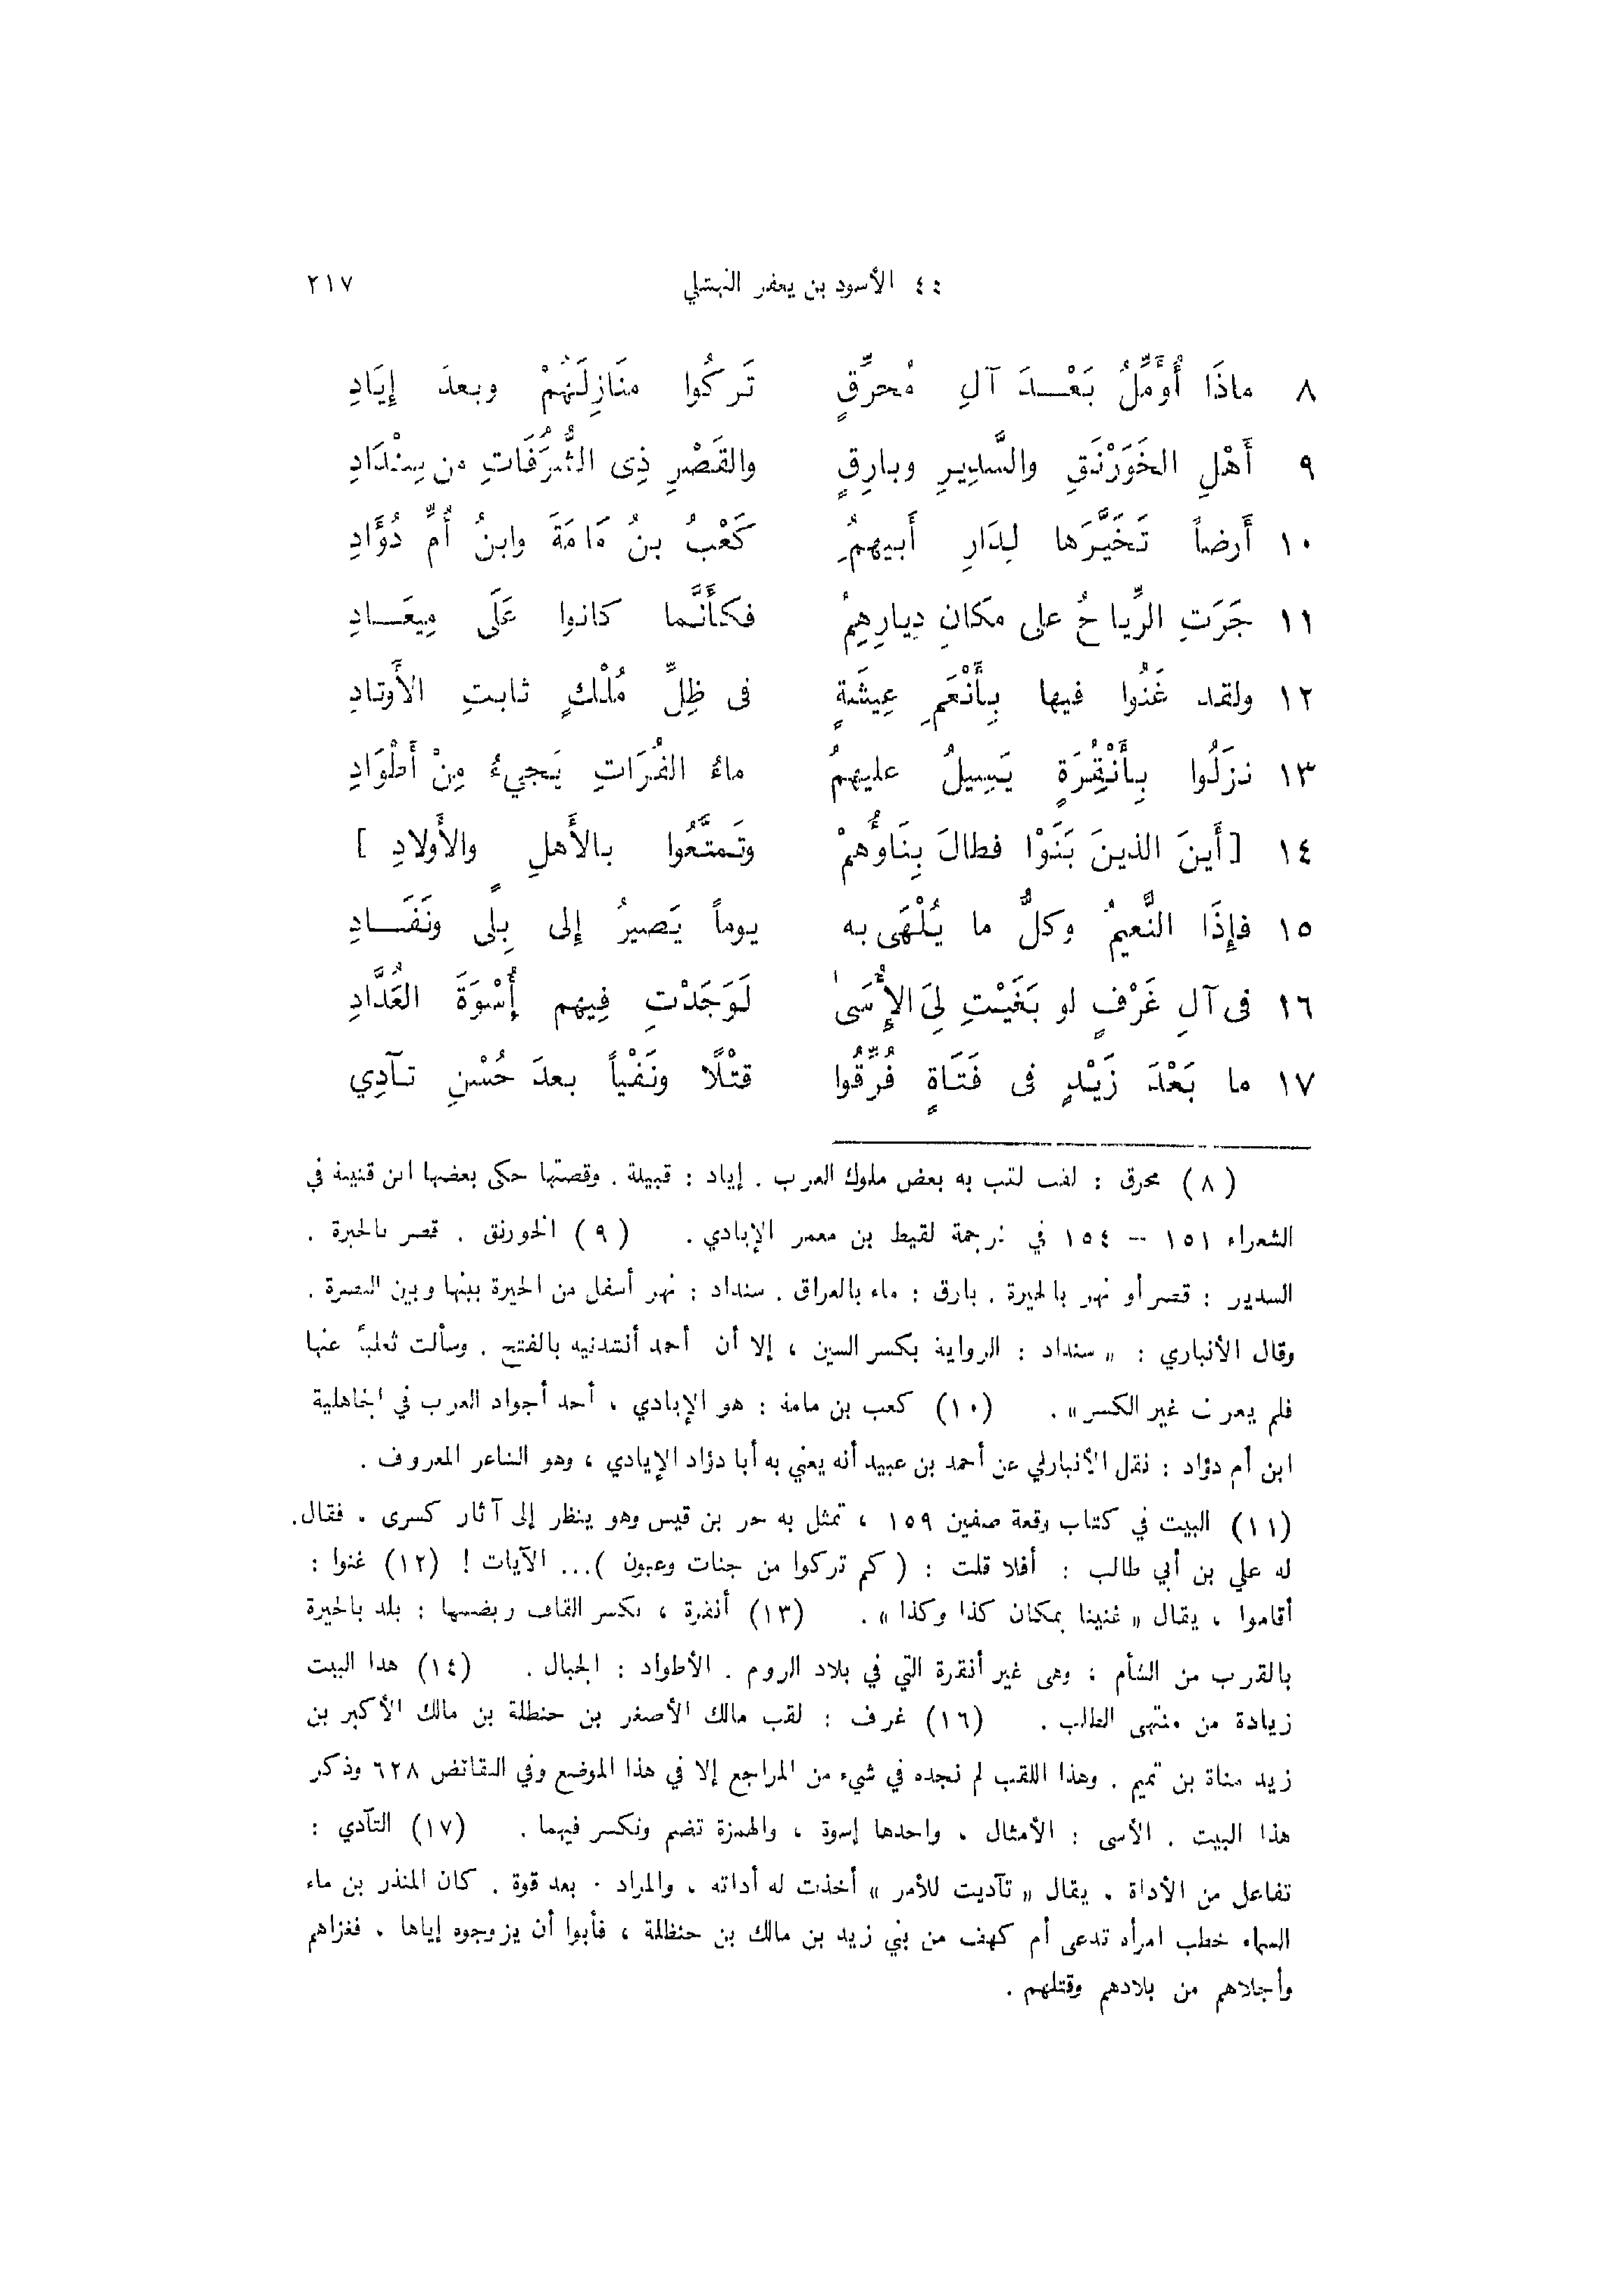 ٤٤ الأسود بن يعفر النهشلي ٢١٧
٨ ماذَا أُؤَمِّلُ بَعْدَ آلِ مُحرِّقٍ تَركُوا منَازِلَهُمْ وبعدَ إِيَادِ
٩ أَهْلِ الخَوَرْنَقِ والسَّدِيرِ وبارِقٍ والقَصْرِ ذِى الشُّرُفَاتِ من سِنْدَادِ
١٠ أَرضاً تَخَيَّرَها لِدَارِ أَبيهِمُ كَعْبُ بنُ مَامَةَ وابنُ أُمِّ دُؤَادِ
١١ جَرَتِ الرِّياحُ على مكَانِ دِيارِهِمْ فكأَنَّما كانوا عَلَى مِيعَادِ
١٢ ولقد غَنُوا فيها بِأَنْعَمِ عِيشَةٍ فى ظِلِّ مُلْكٍ ثابتِ الأَوتادِ
١٣ نزَلُوا بِأَنْقُِرَةٍ يَسِيلُ عليهمُ ماءُ الفُرَاتِ يَجيءُ مِنْ أَطْوَادِ
١٤ [أَينَ الذينَ بَنَوْا فطالَ بِنَاؤُهمْ وتَمتَّعُوا بالأَهلِ والأَولادِ ]
١٥ فإِذَا النَّعيمُ وكلُّ ما يُلْهَى به يوماً يَصيرُ إلى بِلًى ونَفَادِ
١٦ فى آلِ غَرْفٍ لو بَغَيْتِ لِىَ الأُِسَىٰ لَوَجَدْتِ فِيهم أُسْوَةَ العُدَّادِ
١٧ ما بَعْدَ زَيْدٍ فى فَتَاةٍ فُرِّقُوا قتْلًا ونَفْياً بعدَ حُسْنِ تآدِي
(٨) محرق : لقب لقب به بعض ملوك العرب . إياد : قبيلة . وقصتها حكى بعضها ابن قتيبة في
الشعراء ١٥١ – ١٥٤ في ترجمة لقيط بن معمر الإيادي . (٩) الخورنق . قصر بالحيرة .
السدير : قصر أو نهر بالحيرة . بارق : ماء بالعراق . سنداد : نهر أسفل من الحيرة بينها وبين البصرة .
وقال الأنباري : « سنداد : الرواية بكسر السين ، إلا أن أحمد أنشدنيه بالفتح . وسألت ثعلباً عنها
فلم يعرف غير الكسر » . (١٠) كعب بن مامة : هو الإيادي ، أحد أجواد العرب في الجاهلية
ابن أم دؤاد : نقل الأنباري عن أحمد بن عبيد أنه يعني به أبا دؤاد الإيادي ، وهو الشاعر المعروف .
(١١) البيت في كتاب وقعة صفين ١٥٩ ، تمثل به حر بن قيس وهو ينظر إلى آثار كسرى . فقال.
له علي بن أبي طالب : أفلا قلت : ( كم تركوا من جنات وعيون )... الآيات ! (١٢) غنوا :
أقاموا ، يقال « غنينا بمكان كذا وكذا » . (١٣) أنقرة ، بكسر القاف وبضمها : بلد بالحيرة
بالقرب من الشأم ؛ وهى غير أنقرة التي في بلاد الروم . الأطواد : الجبال . (١٤) هذا البيت
زيادة من منتهى الطلب . (١٦) غرف : لقب مالك الأصغر بن حنظلة بن مالك الأكبر بن
زيد مناة بن تميم . وهذا اللقب لم نجده في شيء من المراجع إلا في هذا الموضع وفي النقائض ٦٢٨ وذكر
هذا البيت . الأسى : الأمثال ، واحدها إسوة ، والهمزة تضم وتكسر فيهما . (١٧) التآدي :
تفاعل من الأداة ، يقال « تآديت للأمر » أخذت له أداته ، والمراد . بعد قوة . كان المنذر بن ماء
السماء خطب امرأة تدعى أم كهف من بني زيد بن مالك بن حنظلة ، فأبوا أن يزوجوه إياها ، فغزاهم
وأجلاهم من بلادهم وقتلهم .